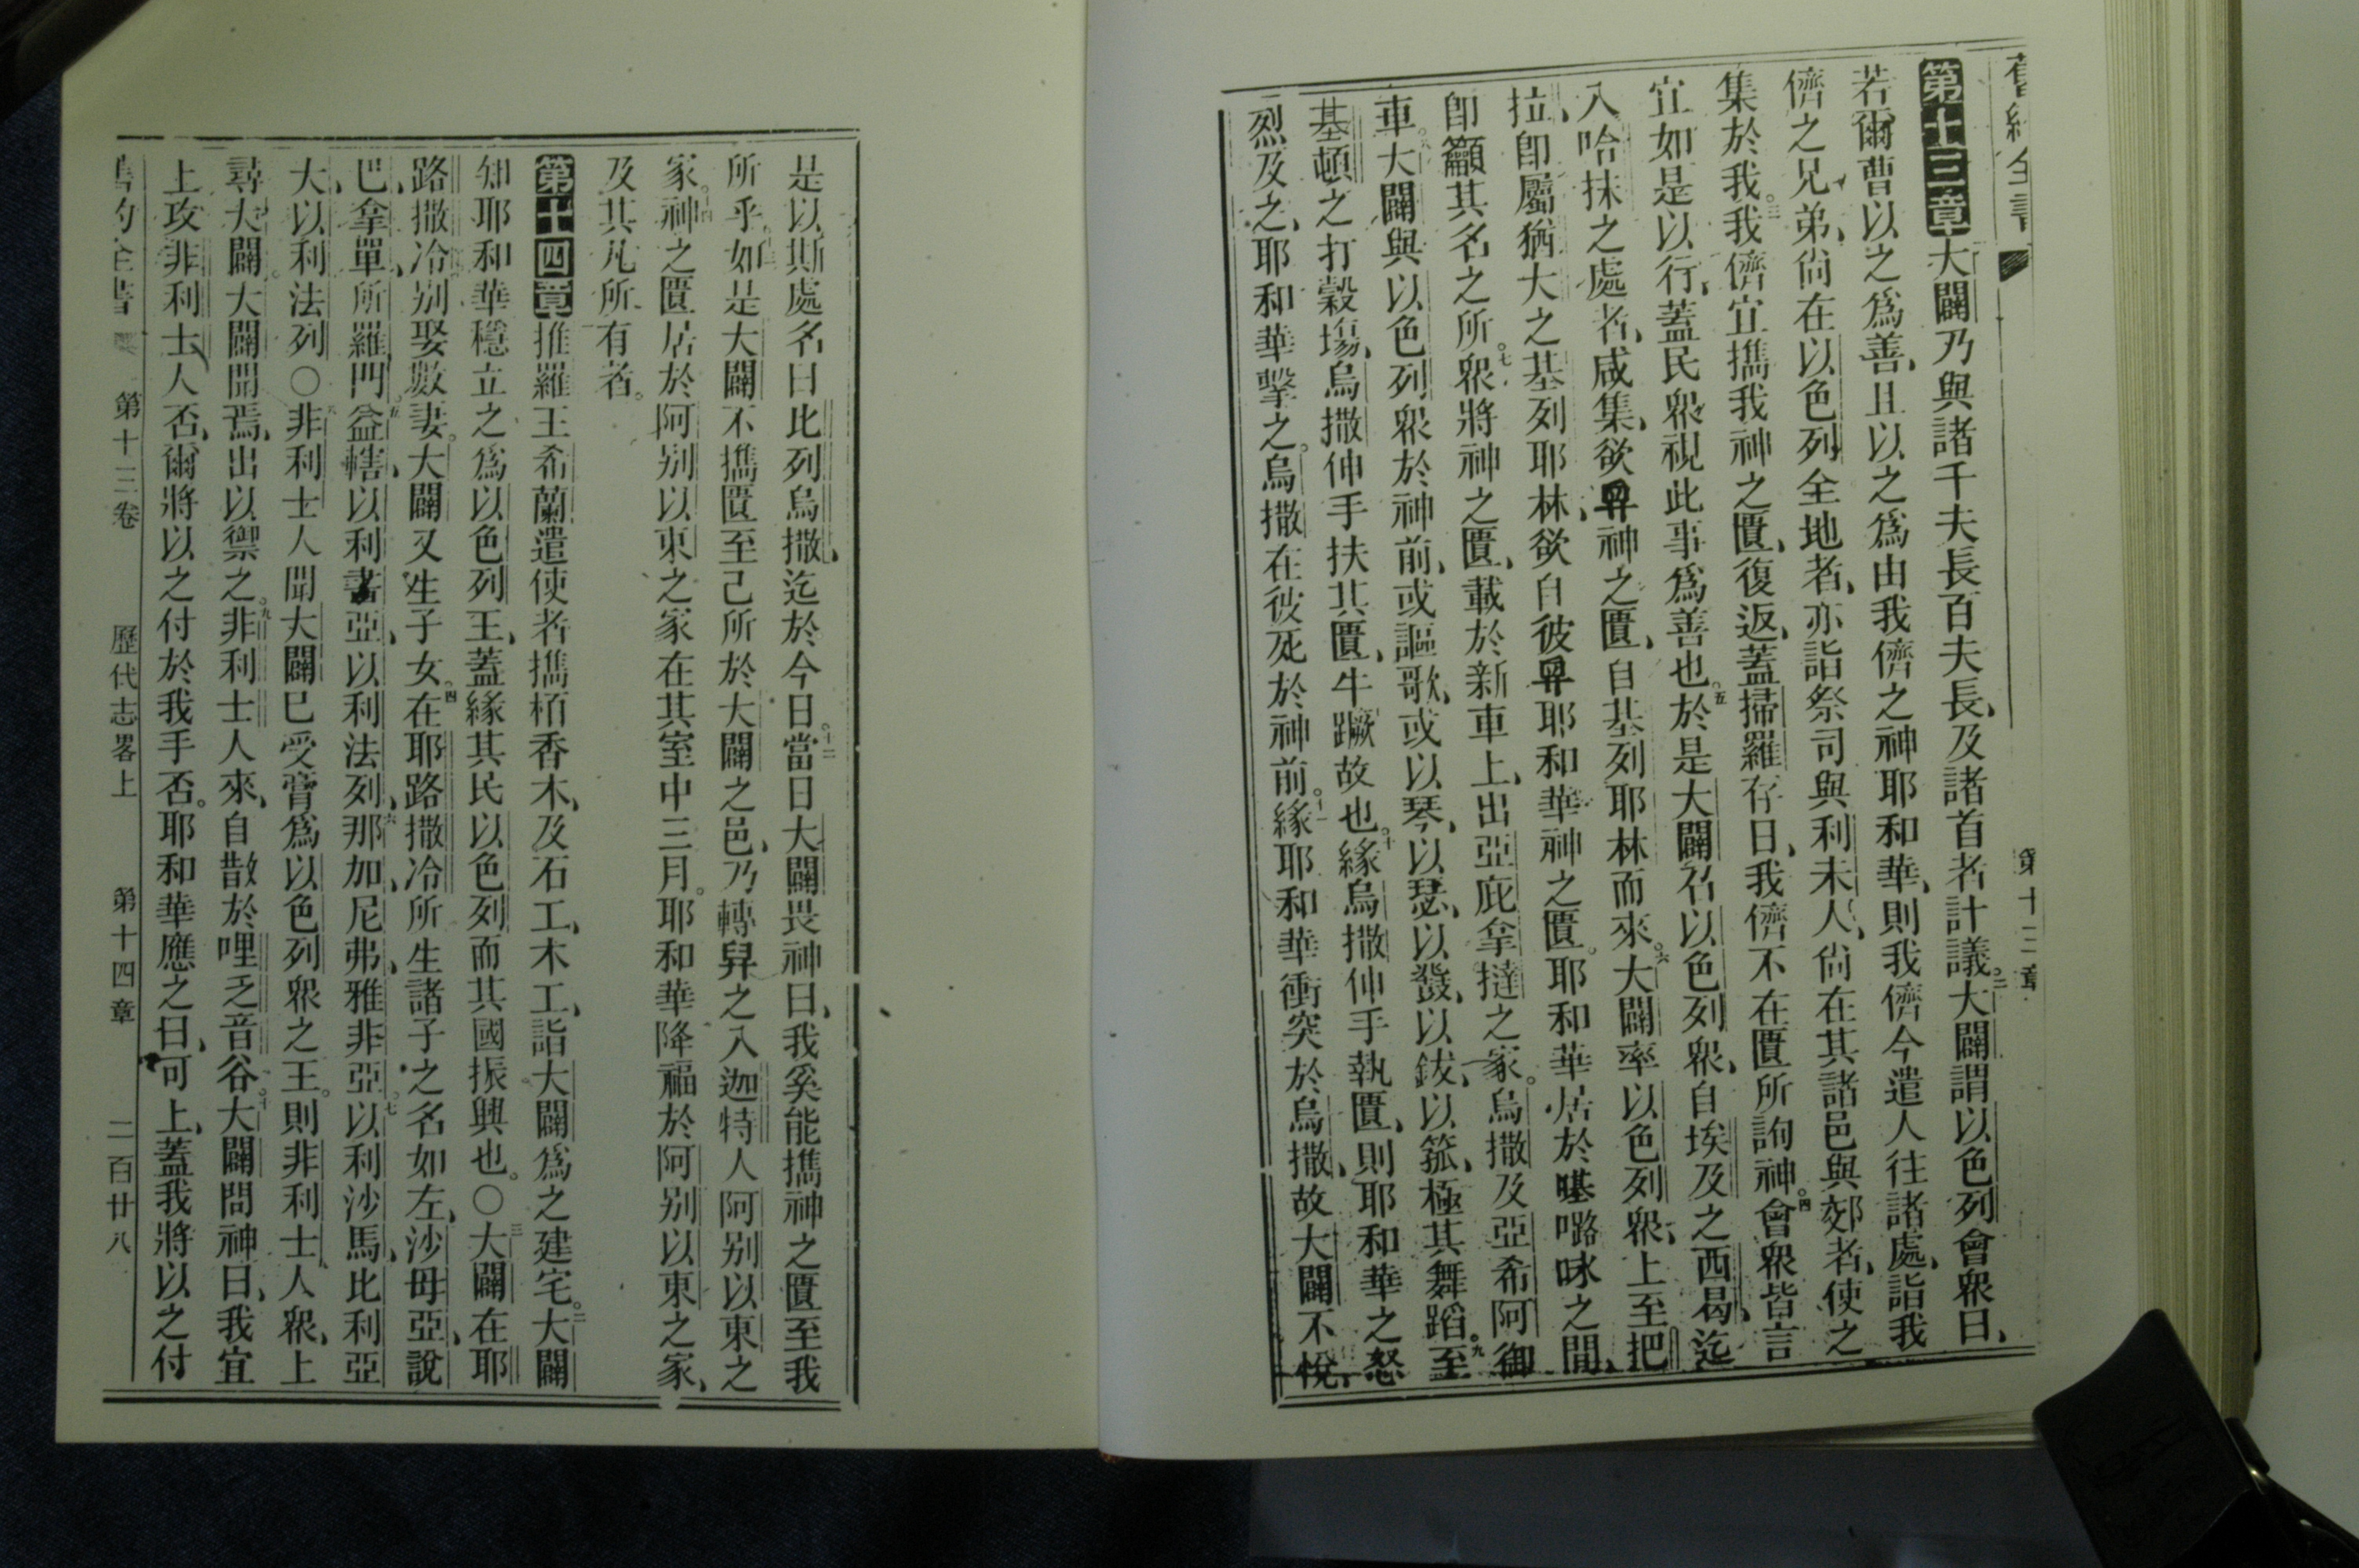 舊約全書
第十三章
第十三章大闢乃與諸千夫長百夫長、及諸首者計議。二大闢謂以色列會衆曰、
若爾曹以之爲善、且以之爲由我儕之神耶和華、則我儕今遣人往諸處、詣我
儕之兄弟、尙在以色列全地者、亦詣祭司與利未人、尙在其諸邑與郊者、使之
集於我。三我儕宜攜我神之匱、復返、蓋掃羅存日、我儕不在匱所詢神。四會衆皆言
宜如是以行、蓋民衆視此事爲善也。五於是大闢召以色列衆、自埃及之西曷、迄
入哈抹之處者、咸集、欲舁神之匱、自基列耶林而來。六大闢率以色列衆、上至把
拉、卽屬猶大之基列耶林、欲自彼舁耶和華神之匱。耶和華居於𠼻嚕㖠之間、
卽籲其名之所。七衆將神之匱、載於新車上、出亞庇拿撻之家。烏撒及亞希阿御
車。八大闢與以色列衆於神前、或謳歌、或以琴、以瑟、以鼗、以鈸、以箛、極其舞蹈。九至
基頓之打穀塲、烏撒伸手扶其匱、牛蹶故也。十緣烏撒伸手執匱、則耶和華之怒
烈及之、耶和華擊之。烏撒在彼死於神前。十一緣耶和華衝突於烏撒、故大闢不悅、
是以斯處名曰比列烏撒、迄於今日。十二當日大闢畏神曰、我奚能攜神之匱至我
所乎。十三如是大闢不攜匱至己所於大闢之邑、乃轉舁之入迦特人阿别以東之
家。十四神之匱居於阿别以東之家在其室中三月。耶和華降福於阿别以東之家、
及其凡所有者。
第十四章推羅王希蘭遣使者攜栢香木、及石工、木工、詣大闢爲之建宅。二大闢
知耶和華穩立之爲以色列王、蓋緣其民以色列而其國振興也。○三大闢在耶
路撒冷、别娶數妻。大闢又生子女。四在耶路撒冷所生諸子之名如左、沙毋亞、說
巴、拿單、所羅門、五益轄、以利書亞、以利法列、六那加、尼弗、雅非亞、七以利沙馬、比利亞
大、以利法列○八非利士人聞大闢已受膏爲以色列衆之王。則非利士人衆、上
尋大闢。大闢聞焉、出以禦之。九非利士人來、自散於哩乏音谷。十大闢問神曰、我宜
上攻非利士人否、爾將以之付於我手否。耶和華應之曰、可上、蓋我將以之付
舊約全書 第十三卷 歷代志畧上 第十四章 二百廿八